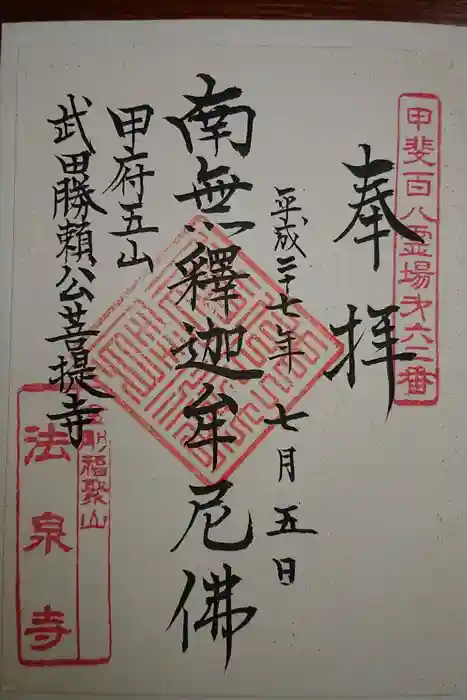 甲斐百八霊場第六二番
奉拝
平成二十七年七月五日
南無釋迦牟尼佛
甲府五山
武田勝頼公菩提寺
福聚山
法泉寺